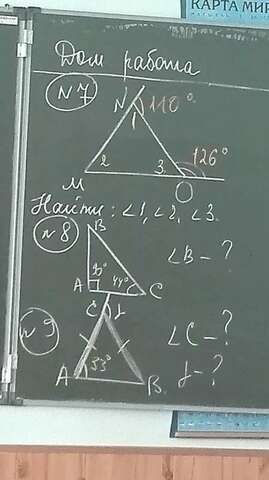 КАРТА МИР
Дом работа
№7
N 110°
1
2 3. 126°
M O
Найти: ∠1, ∠2, ∠3.
№8
B
∠B - ?
90°
A 44° C
№9
C γ
∠C - ?
γ - ?
A 53° B